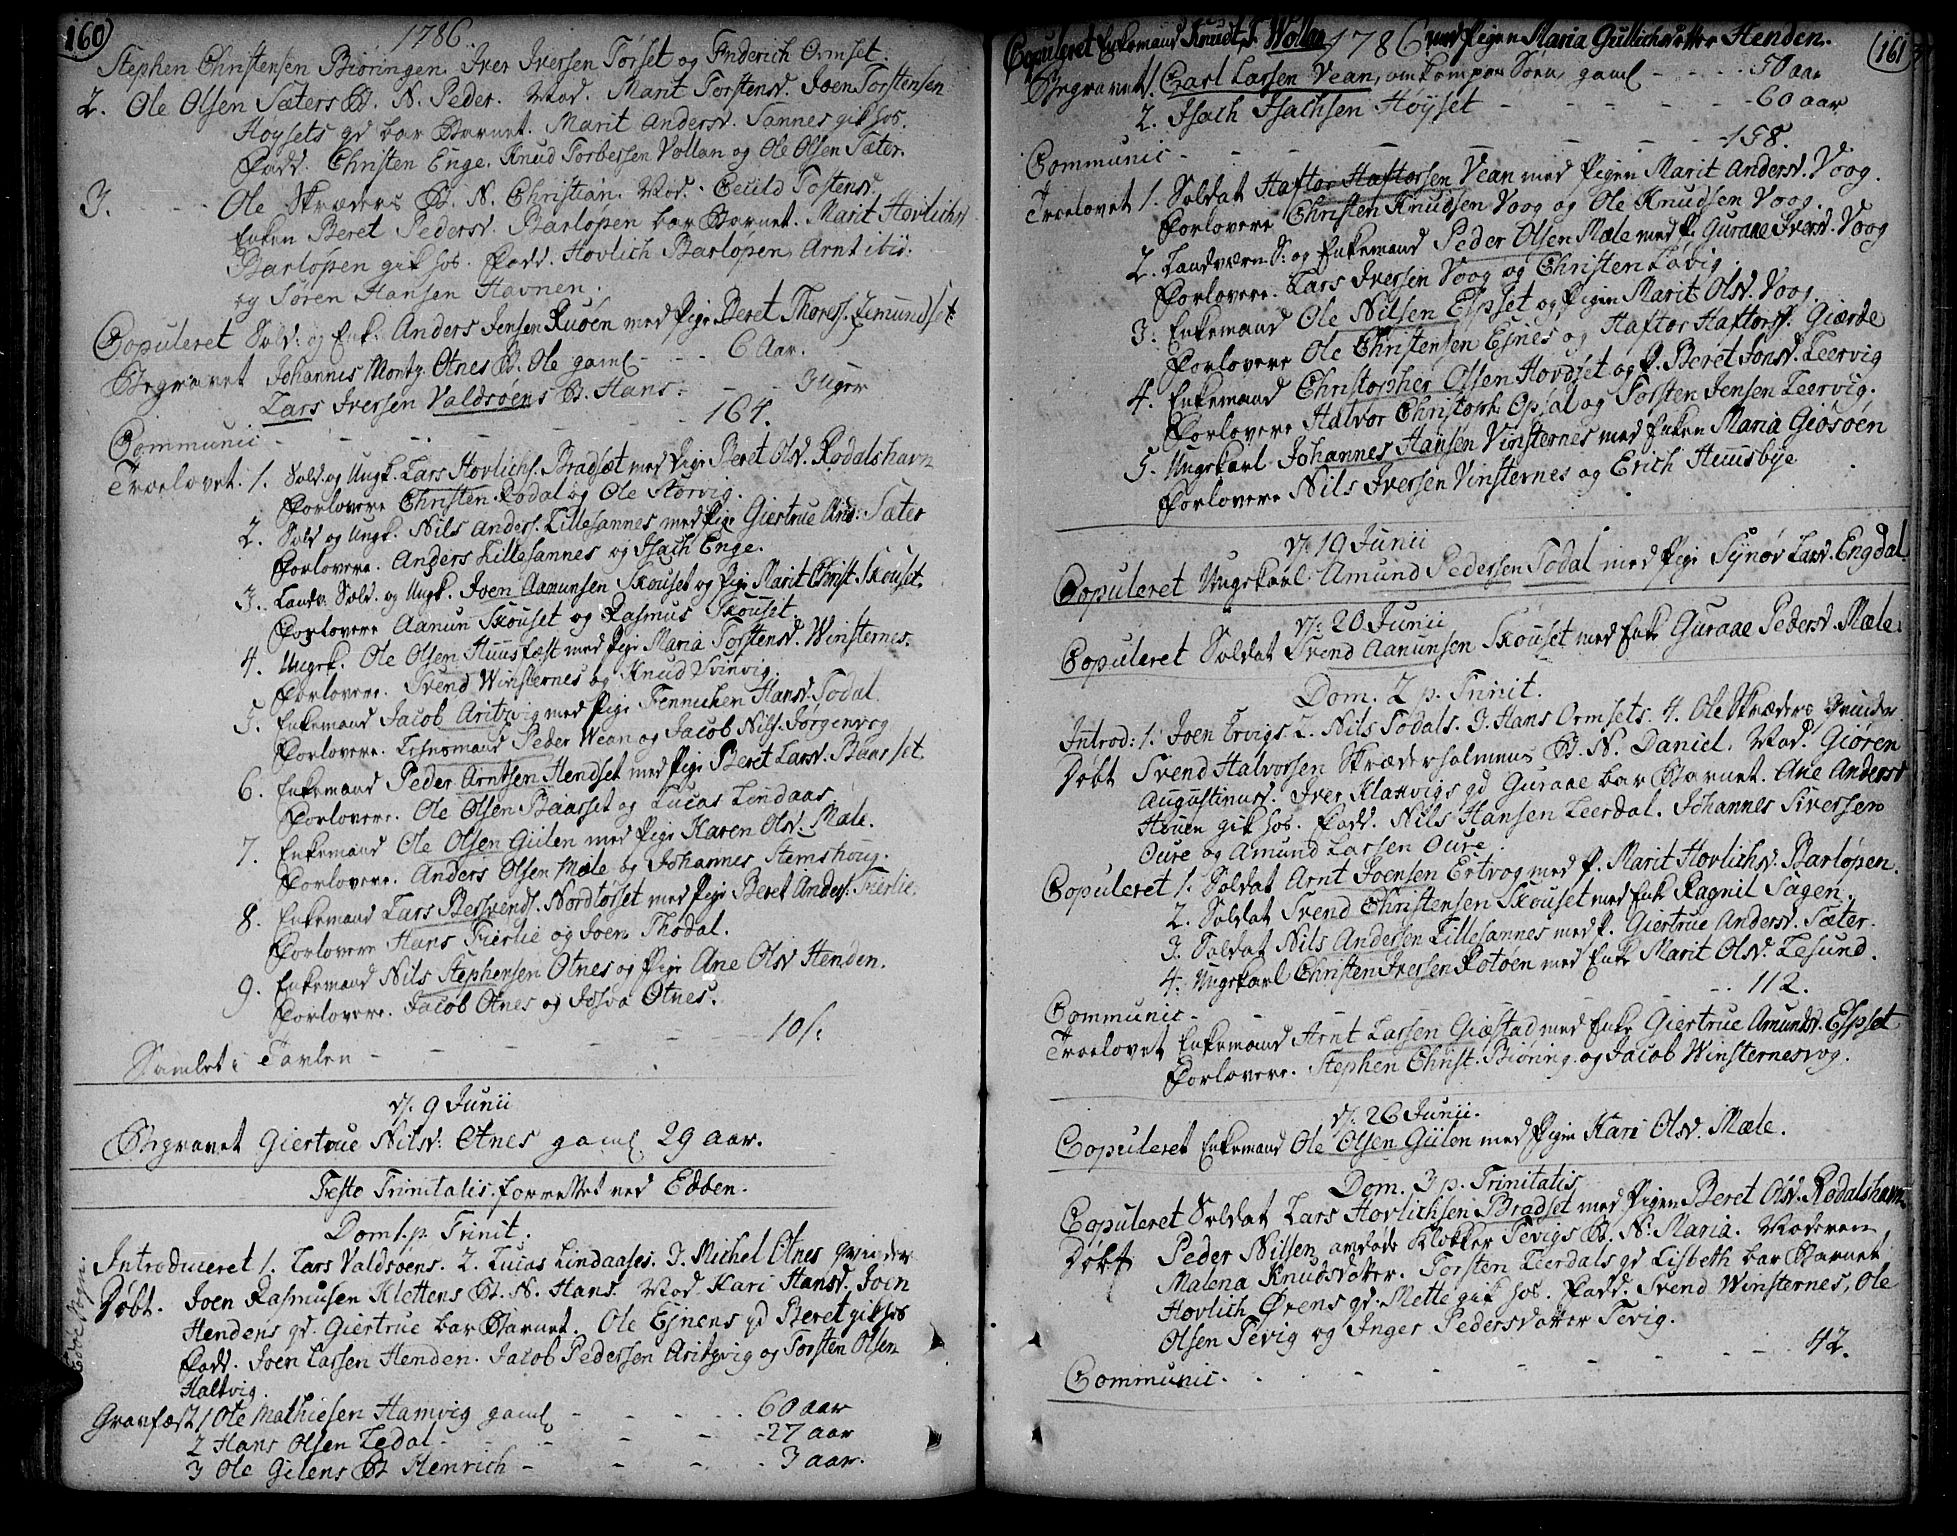 160
1786.
Stephen Christensen Biøringen. Iver Iversen Torset og Friderich Ormset.
2. Ole Olsen Sæters B. N. Peder. Mod. Marit Torstensd. Joen Torstensen
Høysets qd bar Barnet. Marit Andersd. Sannes gik hos.
Fadd. Christen Enge. Knud Torbersen Vollan og Ole Olsen Sæter.
3. Ole Skræders B. N. Christian. Mod. Cecild Tostensd.
Enken Beret Pedersd. Barlopen bar Barnet. Marit Hovlichsd
Barlopen gik hos. Fadd. Hovlich Barlopen, Arnt ibid:
og Søren Hansen Havnen.
Copuleret Sold: og Enk. Anders Jensen Ruøen med Pige Beret Thores. Zemundset
Begravet Johannes Montz. Otnes B. Ole gaml - - - 6 Aar.
Lars Iversen Valdsøens B. Hans: - - 3 Uger
Communic - - - - - 164.
Troelovet. 1. Sold. og Ungk. Lars Hovlichs. Bradset med Pige Beret Olsd. Rodalshavn
Forlovere Christen Rodal og Ole Storvig.
2. Sold og Ungk. Nils Anders. Lillesannes med Pige Giertrue And: Sæter
Forlovere. Anders Lillesannes og Isach Enge.
3. Landv. Sold. og Ungk. Joen Aanunsen Skouset og Pige Marit Christ. Skouset.
Forlovere Aanun Skouset og Rasmus Skouset.
4. Ungk. Ole Olsen Huusfæst med Pige Maria Torstensd. Winsternes.
Forlovere. Svend Winsternes og Knud Svinvig.
5. Enkemand Jacob Aritzvig med Pige Fennichen Hansd. Todal
Forlovere. Lehnsmand Peder Wean og Jacob Nils. Jørgenvog
6. Enkemand Peder Arntsen Hendset med Pige Beret Larsd. Baasset.
Forlovere. Ole Olsen Baasset og Lucas Lindaas
7. Enkemand Ole Olsen Gulen med Pige Karen Olsd. Mæle.
Forlovere. Anders Olsen Mæle og Johannes Stemshoug.
8. Enkemand Lars Bersvends. Nordtøset med Pige Beret Anders. Fierlie.
Forlovere Hans Fierlie og Joen Thodal.
9. Enkemand Nils Stephensen Otnes og Pige Ane Olsd Henden.
Forlovere. Jacob Otnes og Josva Otnes.
Samlet i Tavlen - - - - - 10 s.
d. 9 Junii
Begravet Giertrue Nilsd: Otnes gaml 29 aar.
Festo Trinitatis. forrettet ved Edøen.
Dom 1. p. Trinit.
Edøe Sogn.
Introduceret 1. Lars Valdsøens. 2. Lucas Lindaases. 3. Michel Otnes Qvinder
Døbt. Joen Rasmusen Klettens B. N. Hans. Mod. Kari Hansd. Joen
Hendens qd. Giertrue bar Barnet. Ole Ejnens qd Beret gik hos
Fadd. Joen Larsen Henden. Jacob Pedersen Aritzvig og Torsten Olsen
Haltvig.
Gravfæst 1 Ole Mathiesen Hamvig gaml - - - 60 aar
2 Hans Olsen Ledal - - - 27 aar
3 Ole Gilens B Henrich - - - 3 aar.
161
Copuleret Enkemand Knud T. Wollan 1786 med Pigen Maria Gullichsdotter Henden.
Begravet 1. Carl Larsen Vean, omkompen Søen gaml - - - 50 aar
2. Isach Isachsen Høyset - - - 60 aar
Communic - - - - - 158.
Troelovet 1. Soldat Haftor Haftorsen Vean med Pigen Marit Andersd. Voog.
Forlovere Christen Knudsen Voog og Ole Knudsen Voog.
2. Landværn. S: og Enkemand Peder Olsen Mæle med P. Guraae Iversd. Voog
Forlovere. Lars Iversen Voog og Christen Lavig.
3. Enkemand Ole Nilsen Espset og Pigen Marit Olsd. Voog.
Forlovere Ole Christensen Ejnes og Haftor Haftors. Giærde
4. Enkemand Christopher Olsen Hovdset og P. Beret Jonsd. Leervig
Forlovere Halvor Christoph. Opsal og Torsten Jensen Leervig.
5. Ungekarl Johannes Hansen Vinsternes med Enken Maria Giøsøen
Forlovere Nils Iversen Vinsternes og Erich Huusbye
d. 19 Junii
Copuleret Ungekarl Amund Pedersen Todal med Pige Synøv Larsd. Engdal.
d. 20 Junii
Copuleret Soldat Svend Aanunsen Skouset med Enke Guraae Pedersd. Mæle.
Dom. 2 p. Trinit.
Introd: 1. Joen Ervigs 2. Nils Todals. 3. Hans Ormsets. 4. Ole Skræders Qvinder
Døbt Svend Halvorsen Skræderholmens B. N. Daniel. Mod. Giøren
Augustinusd. Iver Klakvigs qd Guraae bar Barnet. Ane Andersd
Hauen gik hos. Fadd. Nils Hansen Leerdal. Johannes Siversen
Oure og Amund Larsen Oure.
Copuleret 1. Soldat Arnt Joensen Ertvog med P. Marit Hovlichsd. Barløpen.
2. Soldat Svend Christensen Skouset med Enk Ragnil Sagen.
3. Soldat Nils Andersen Lillesannes med P. Giertrue Andersd. Sæter.
4. Ungekarl Christen Iversen Rotøen med Enke Marit Olsd. Lesund.
Communic. - - - - 112.
Troelovet Enkemand Arnt Larsen Giæstad med Enke Giertrue Amundsd. Espset
Forlovere. Stephen Christ. Biøring. og Jacob Winsternesvog.
d. 26 Junii.
Copuleret Enkemand Ole Olsen Gulen med Pigen Kari Olsd. Mæle.
Dom. 3 p. Trinitatis
Copuleret Soldat Lars Hovlichsen Bradset med Pigen Beret Olsd. Rodalshavn
Døbt Peder Nilsen, Klokker Tevigs B. N. Maria. Moderen
Malena Knudsdotter. Torsten Leerdals qd Lisbeth bar Barnet
Hovlich Ørens qd. Mette gik hos. Fadd. Svend Winsternes, Ole
Olsen Tevig og Inger Pedersdotter Tevig.
Communic. - - - - - 42.